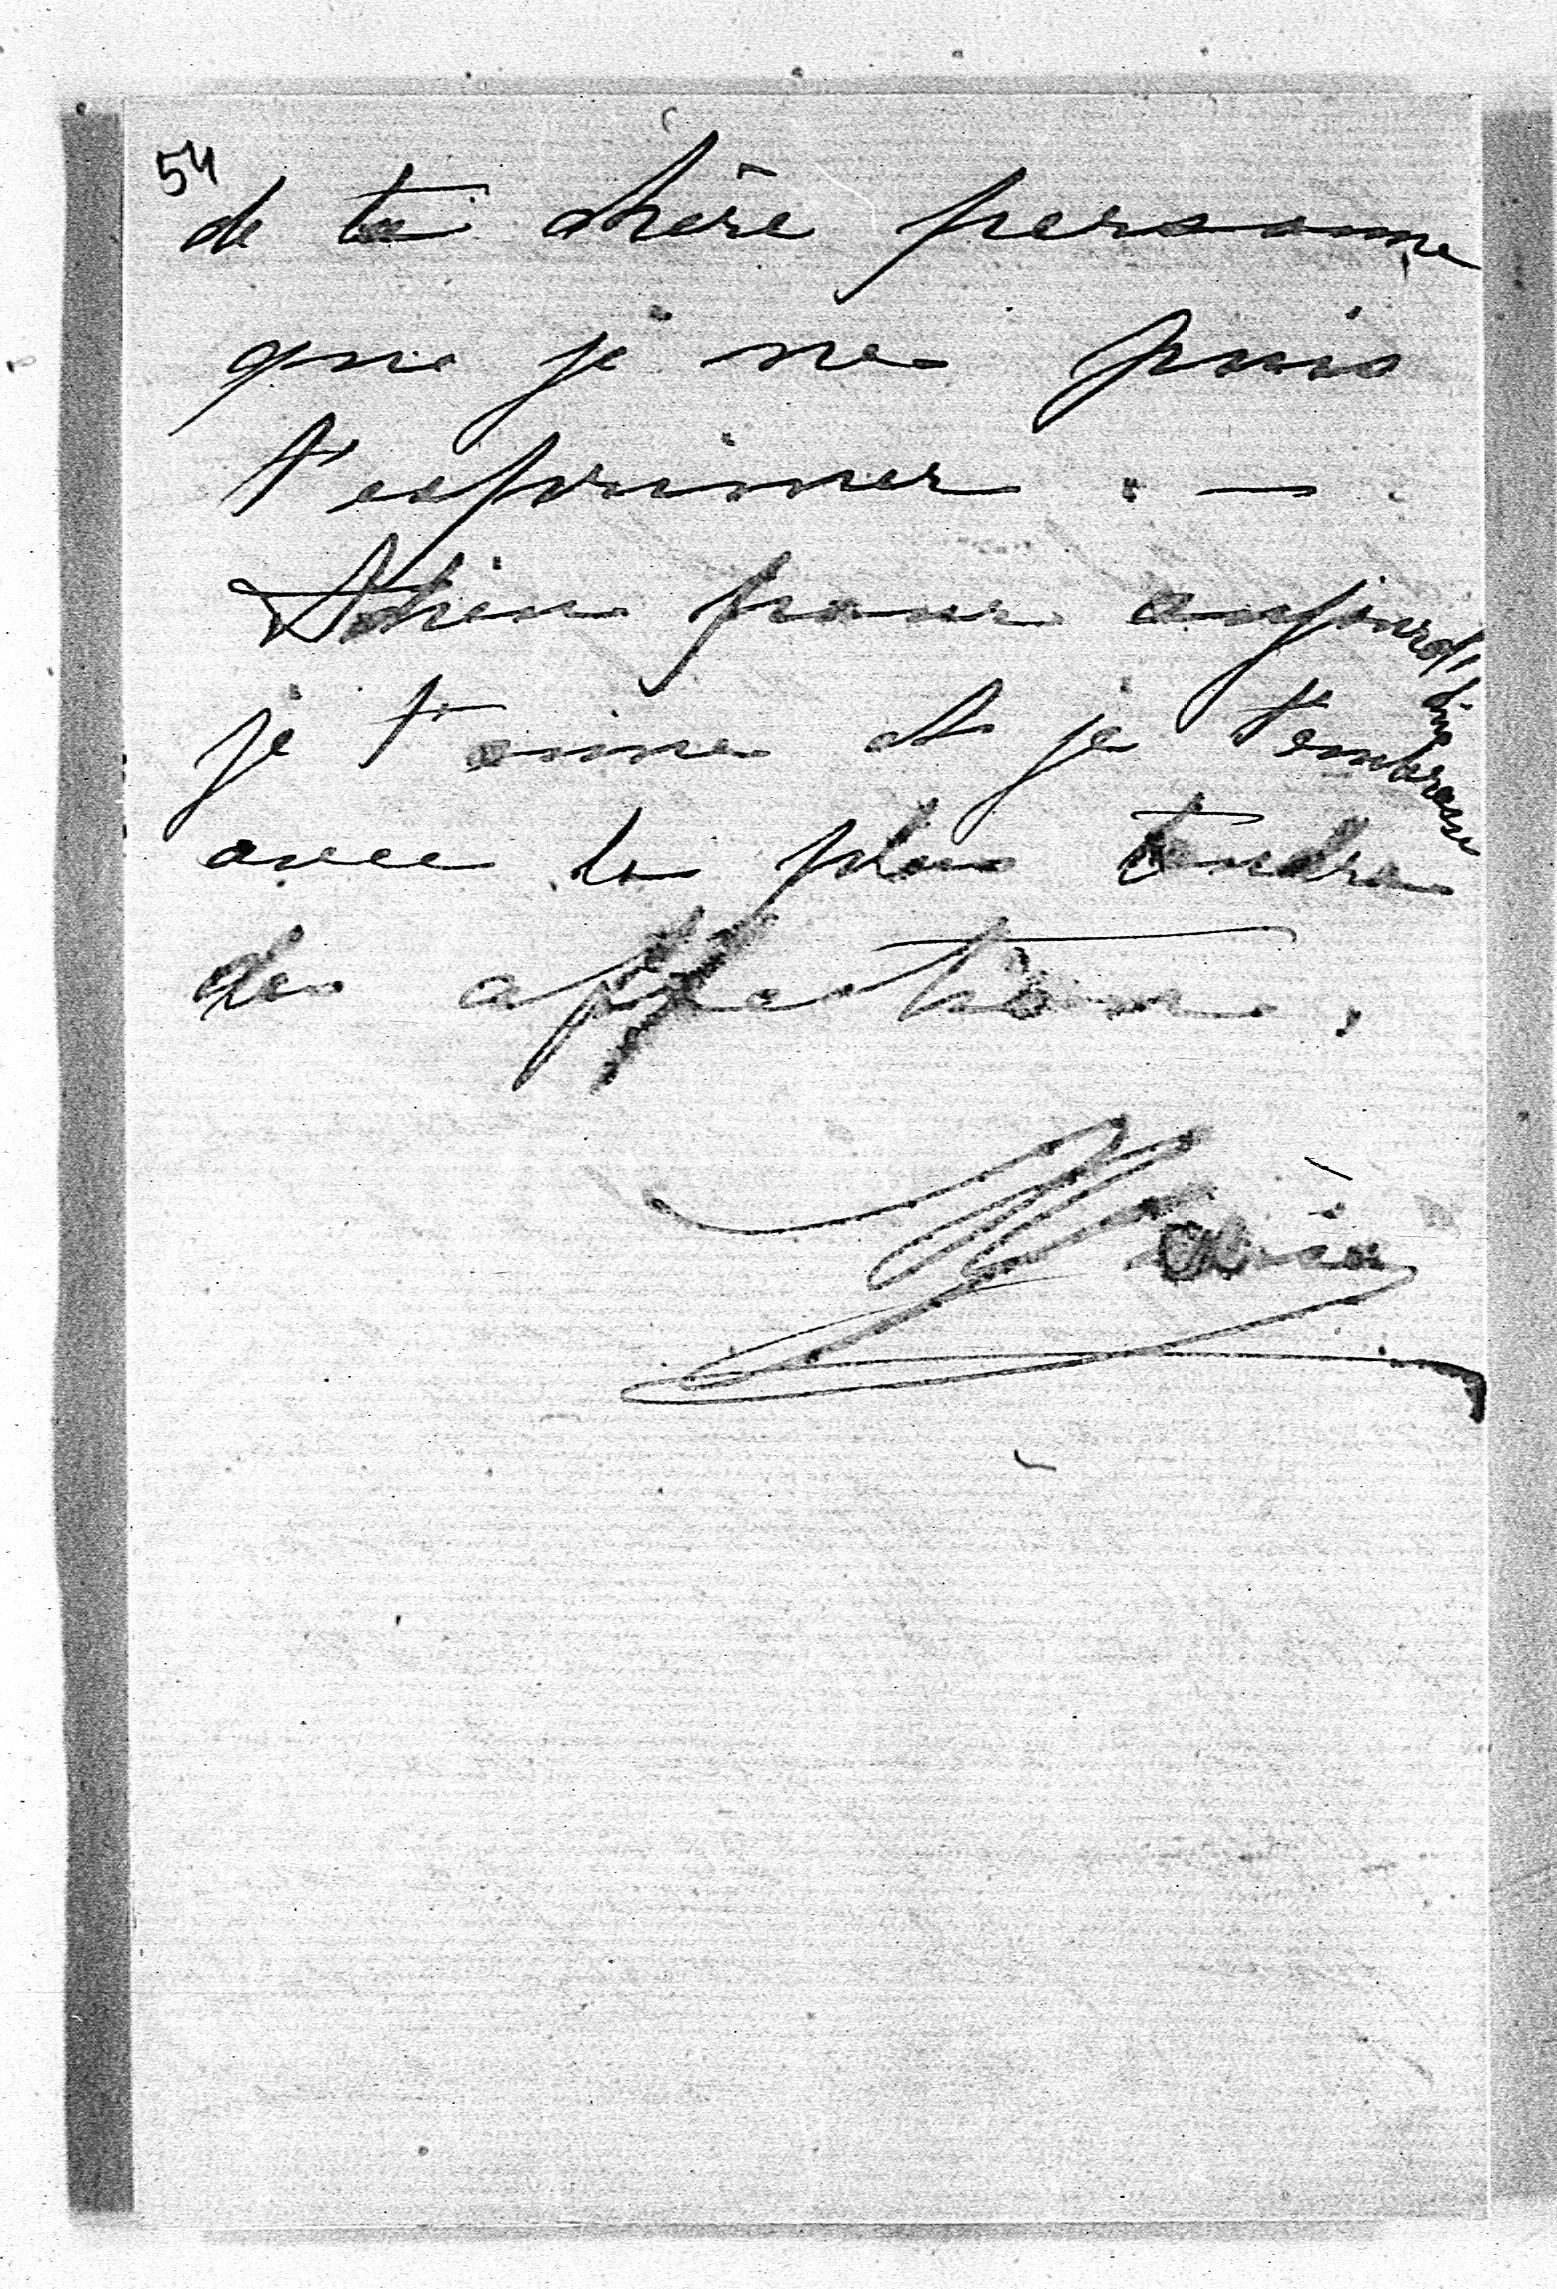 54
de ta chère personne
que je ne puis
t'exprimer. —
Adieu pour aujourd'hui
je t'aime et je t'embrasse
avec la plus tendre
des affections.
Maria